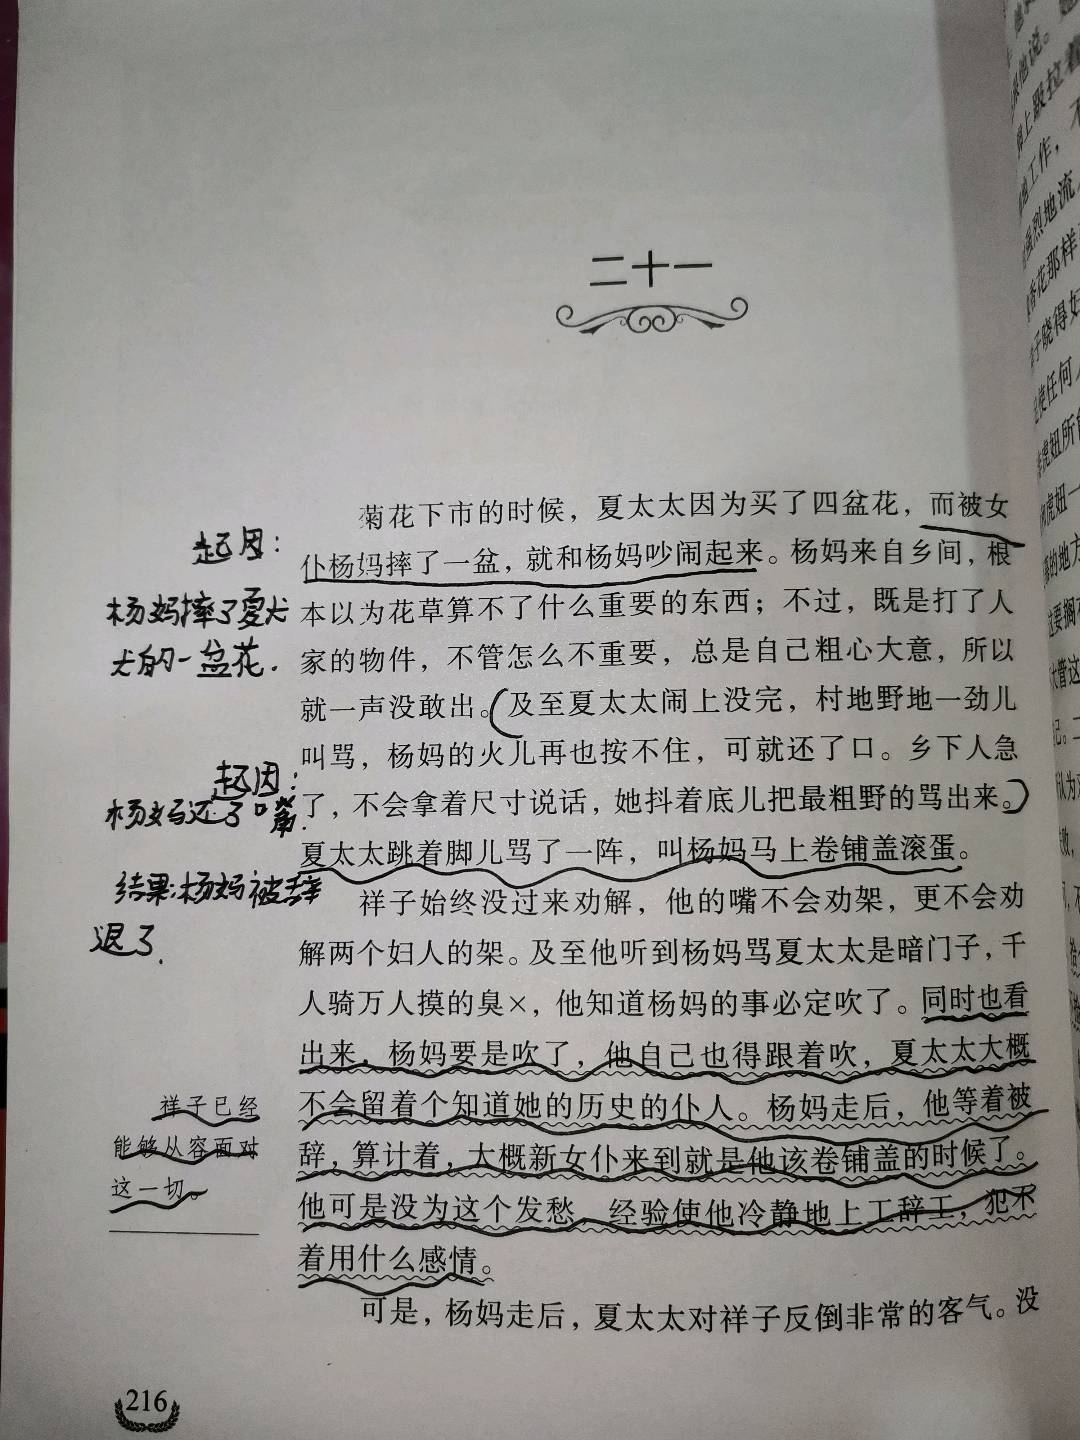 二十一
菊花下市的时候，夏太太因为买了四盆花，而被女
仆杨妈摔了一盆，就和杨妈吵闹起来。杨妈来自乡间，根
本以为花草算不了什么重要的东西；不过，既是打了人
家的物件，不管怎么不重要，总是自己粗心大意，所以
就一声没敢出。及至夏太太闹上没完，村地野地一劲儿
叫骂，杨妈的火儿再也按不住，可就还了口。乡下人急
了，不会拿着尺寸说话，她抖着底儿把最粗野的骂出来。
夏太太跳着脚儿骂了一阵，叫杨妈马上卷铺盖滚蛋。
祥子始终没过来劝解，他的嘴不会劝架，更不会劝
解两个妇人的架。及至他听到杨妈骂夏太太是暗门子，千
人骑万人摸的臭×，他知道杨妈的事必定吹了。同时也看
出来，杨妈要是吹了，他自己也得跟着吹，夏太太大概
不会留着个知道她的历史的仆人。杨妈走后，他等着被
辞，算计着，大概新女仆来到就是他该卷铺盖的时候了。
他可是没为这个发愁，经验使他冷静地上工辞工，犯不
着用什么感情。
可是，杨妈走后，夏太太对祥子反倒非常的客气。没
起因：
杨妈摔了夏太
太的一盆花.
起因：
杨妈还了口嘴.
结果:杨妈被辞
退了.
祥子已经
能够从容面对
这一切。
216